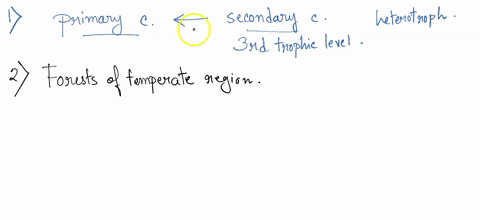 1) primary c. ← secondary c. heterotroph.
3rd trophic level.
2) Forests of temperate region.